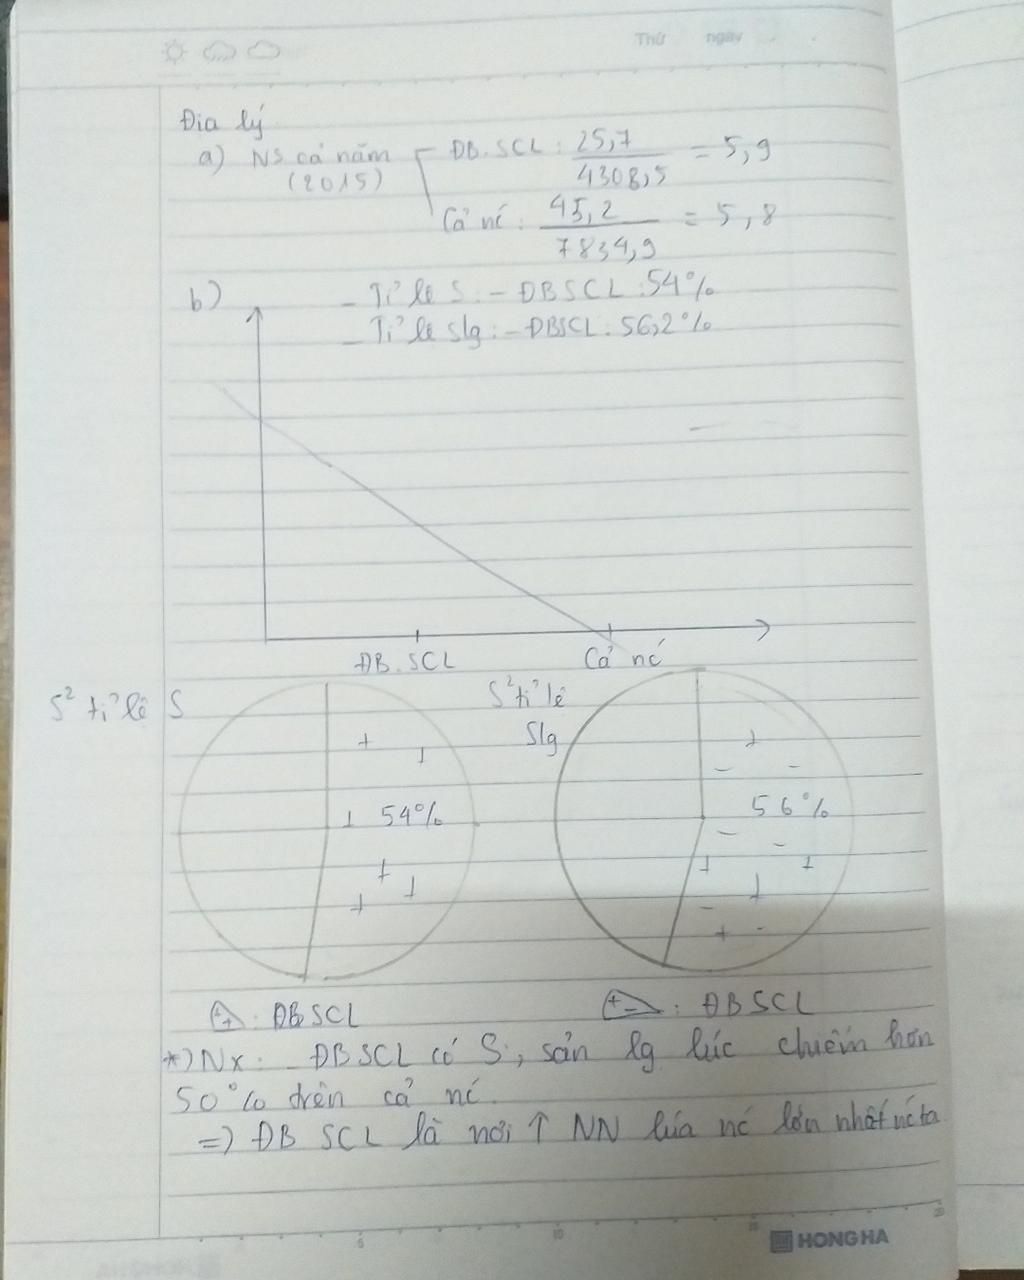 Thứ ngày
Địa lý
a) NS cả năm (2015)
ĐB.SCL: 25,7 / 4308,5 = 5,9
Cả nć: 45,2 / 7834,9 = 5,8
b)
- Tỉ lệ S: - ĐBSCL: 54%
- Tỉ lệ Slg: - ĐBSCL: 56,2%
ĐB.SCL Cả nć
S² tỉ lệ S
S² tỉ lệ
Slg
54%
56%
: ĐBSCL
: ĐBSCL
*) Nx: - ĐBSCL có S, sản lg lúc chiếm hơn
50% trên cả nć.
=) ĐB SCL là nơi ↑ NN lúa nć lớn nhất nć ta
5 10 15 20
HONG HA